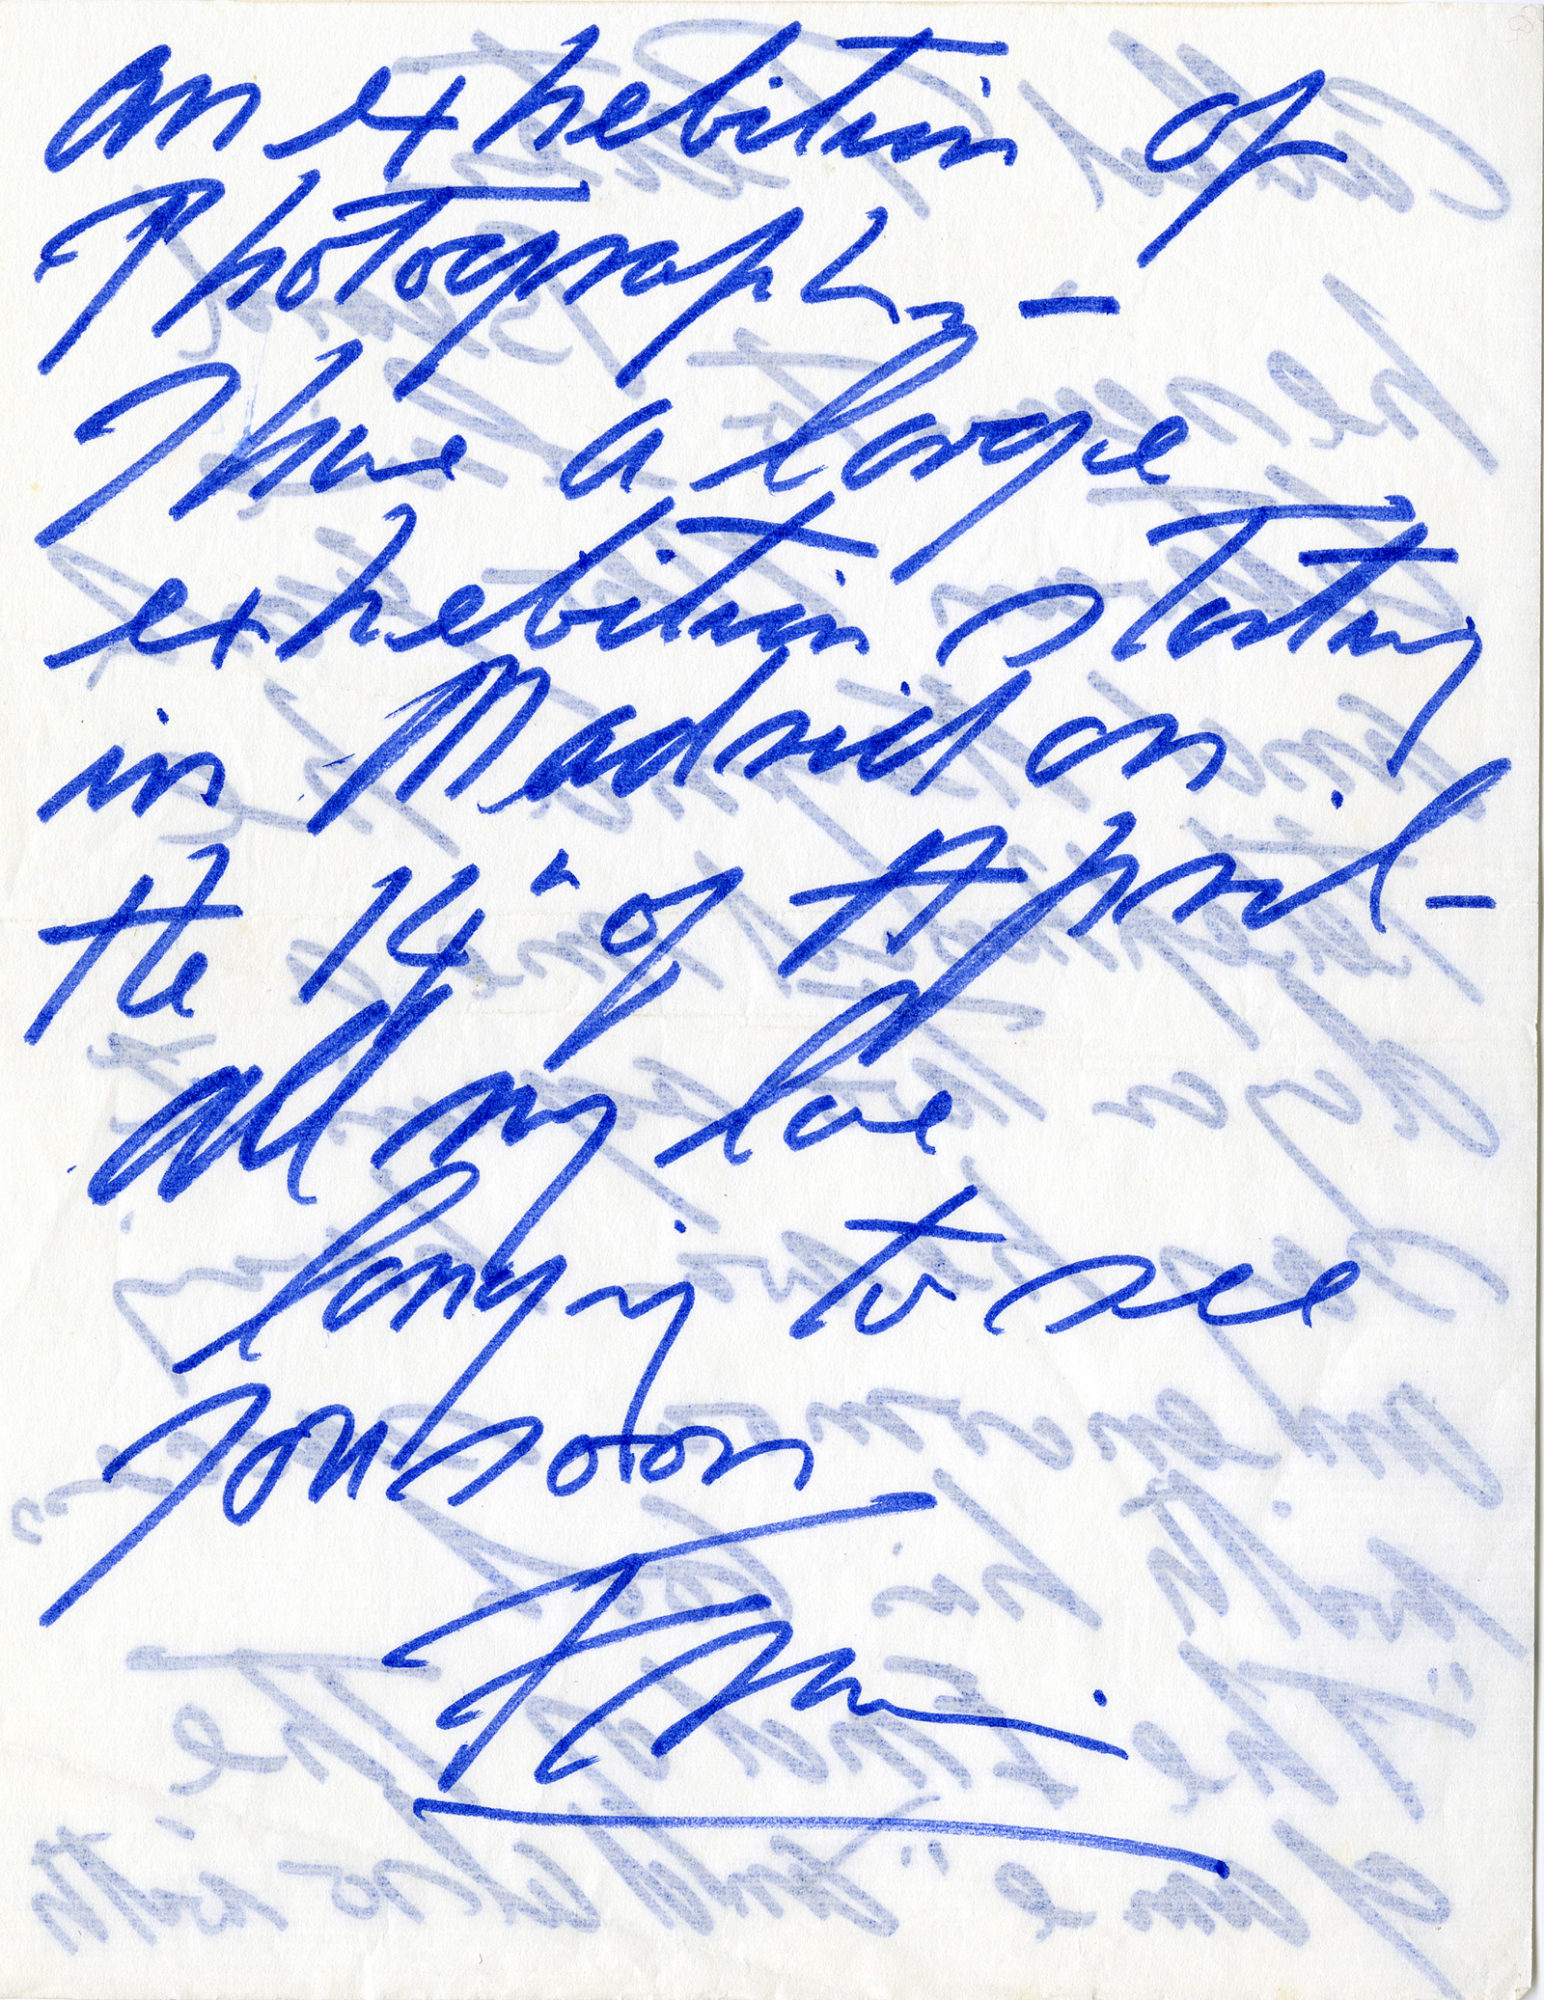 an exhebition of
Photography –
I have a large
exhebition starting
in Madrid on
the 14th of April –
all my love
longing to see
you soon